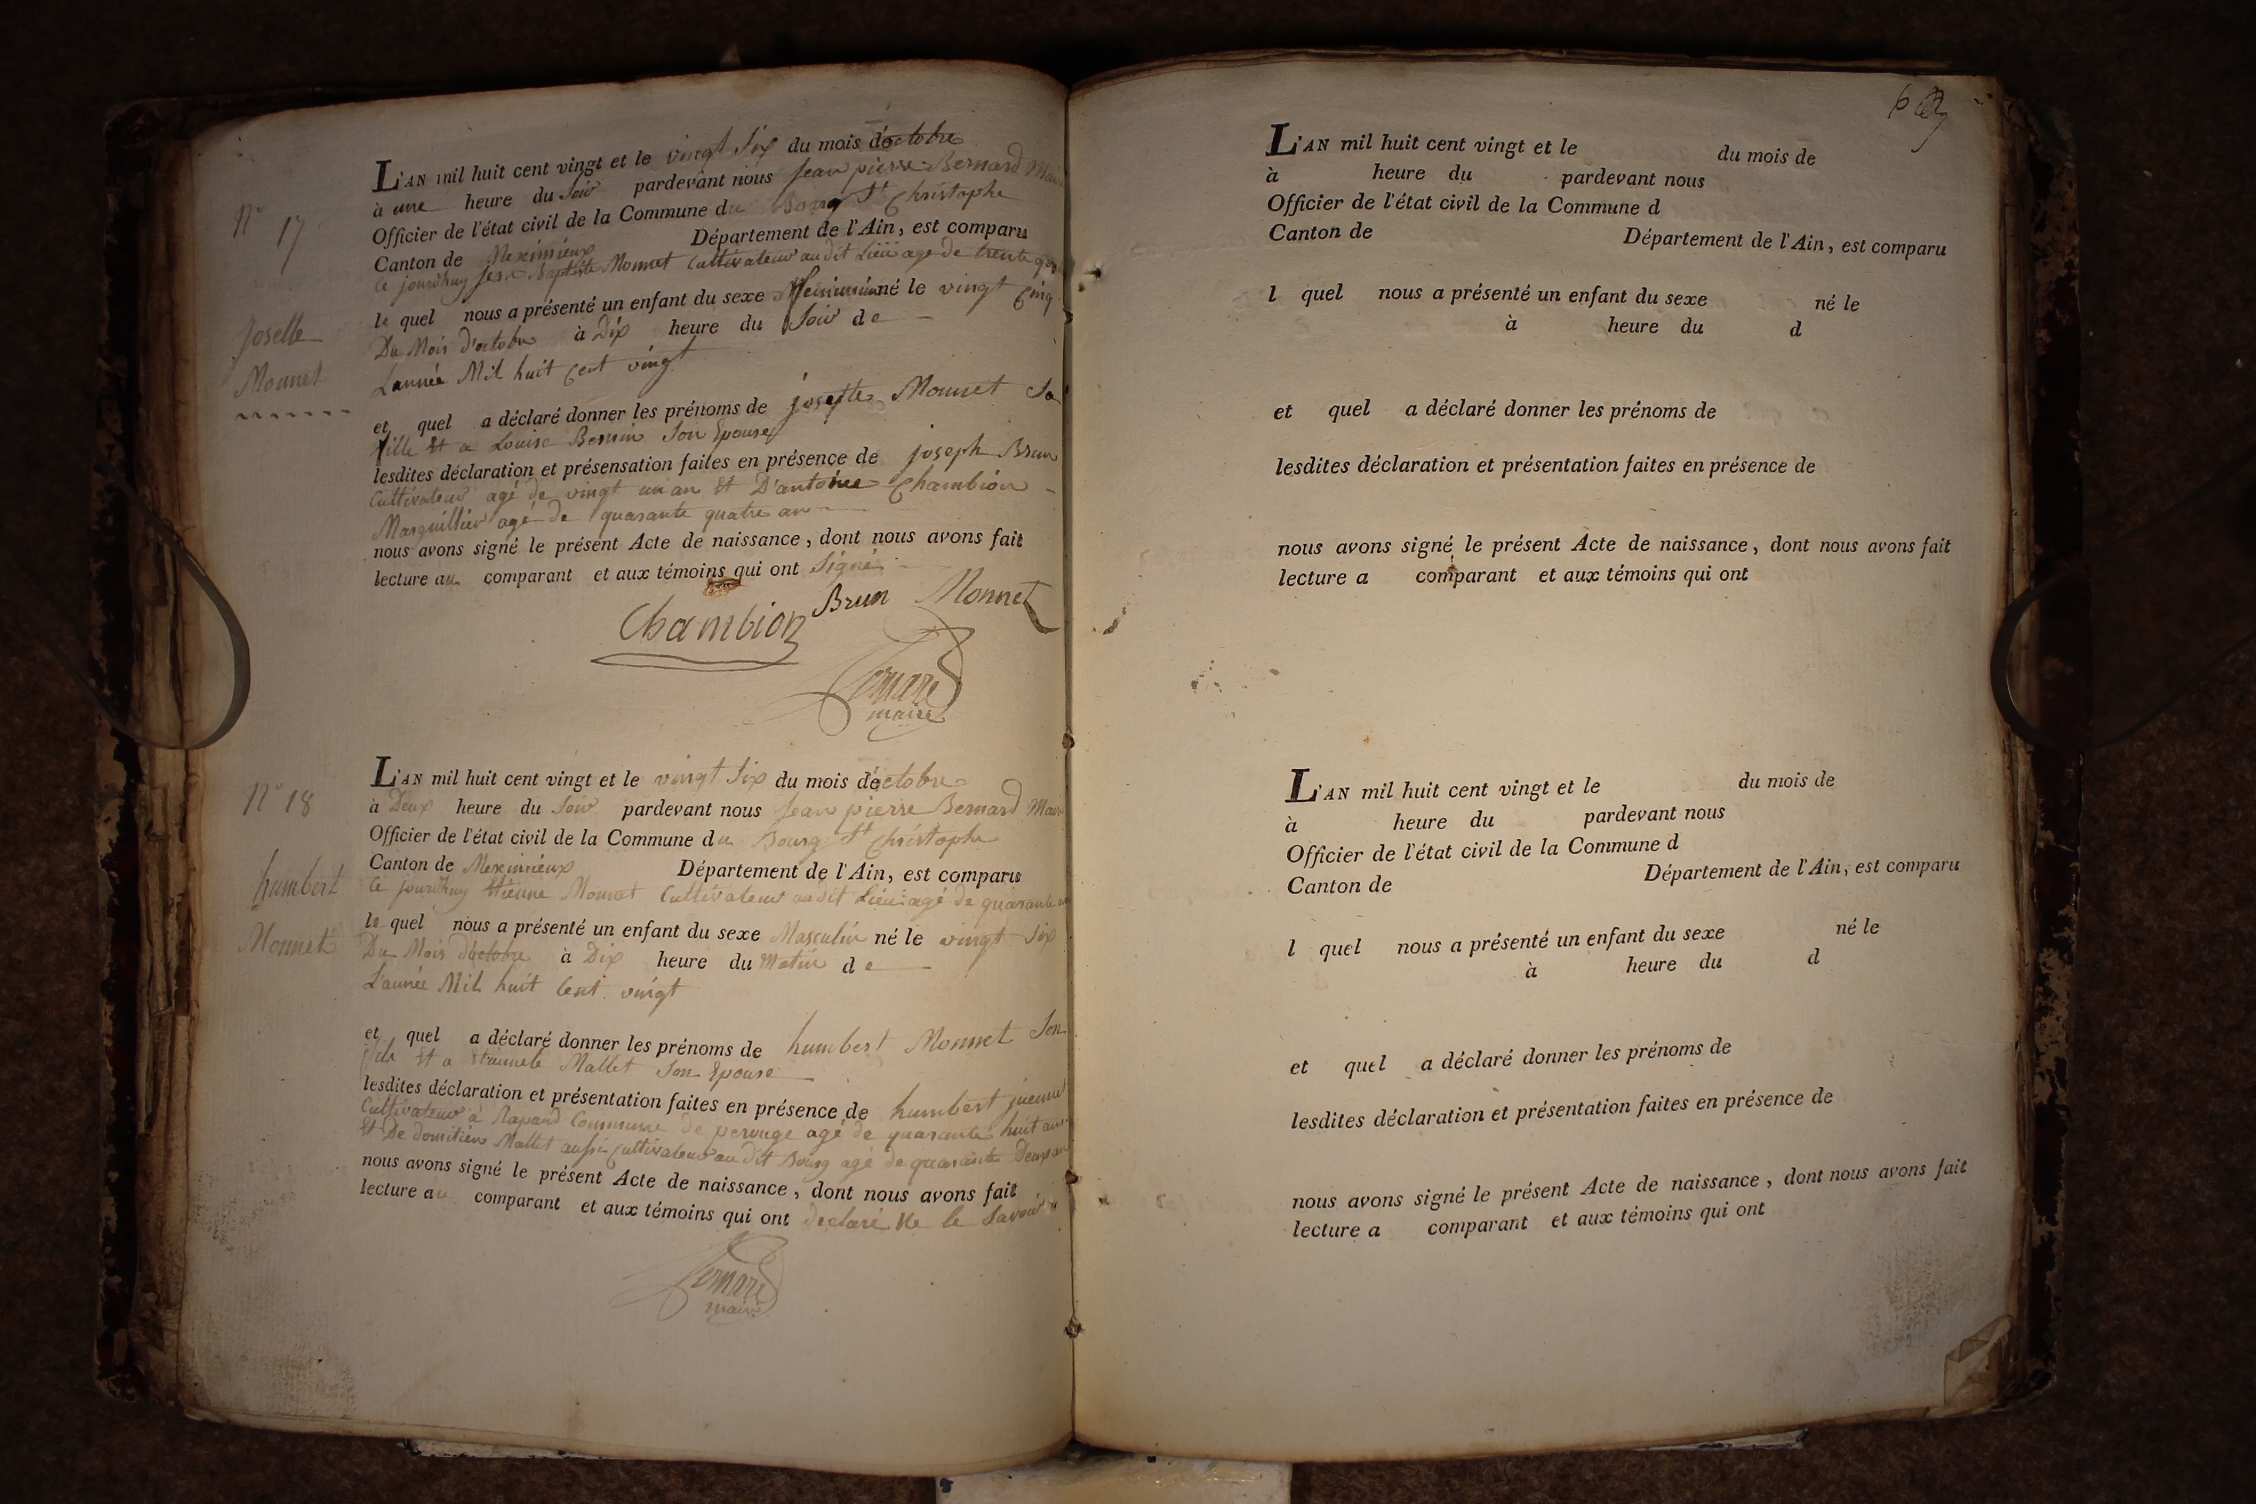 N° 17
Josette
Monnet
L'AN mil huit cent vingt et le vingt Six du mois d'octobre
à une heure du Soir pardevant nous Jean pierre Bernard Maire
Officier de l'état civil de la Commune du Bourg St Christophe
Canton de Meximieux Département de l'Ain, est comparu
Ce jourdhuy Jean Baptiste Monnet Cultivateur au dit Lieu agé de trente
le quel nous a présenté un enfant du sexe né le vingt Cinq
Du Mois d'octobre à Dix heure du Soir de
Lannée Mil huit Cent vingt
et quel a déclaré donner les prénoms de josette Monnet Sa
fille et a Louise Son Epouse
lesdites déclaration et présensation faites en présence de joseph Brun
Cultivateur agé de vingt un an Et D'antoine Chambion
Marguillier agé de quarante quatre an
nous avons signé le présent Acte de naissance, dont nous avons fait
lecture au comparant et aux témoins qui ont Signé
Chambion Brun Monnet
Bernard
maire
N° 18
humbert
Monnet
L'AN mil huit cent vingt et le vingt Six du mois d'octobre
à Deux heure du Soir pardevant nous Jean pierre Bernard Maire
Officier de l'état civil de la Commune du Bourg St Christophe
Canton de Meximieux Département de l'Ain, est comparu
Ce jourdhuy Etienne Monnet Cultivateur au dit Lieu agé de quarante
le quel nous a présenté un enfant du sexe Masculin né le vingt Six
Du Mois d'octobre à Dix heure du Matin de
L'année Mil huit Cent vingt
et quel a déclaré donner les prénoms de humbert Monnet Son
fils Et a Mallet Son Epouse
lesdites déclaration et présentation faites en présence de humbert
Cultivateur à Rapand Commune de perouge agé de quarante huit ans
Et De domitien Mallet aussi Cultivateur au dit Bourg agé de quarante Deux an
nous avons signé le présent Acte de naissance, dont nous avons fait
lecture au comparant et aux témoins qui ont declaré Ne le Savoir
Bernard
maire
L'AN mil huit cent vingt et le du mois de
à heure du pardevant nous
Officier de l'état civil de la Commune d
Canton de Département de l'Ain, est comparu
l quel nous a présenté un enfant du sexe né le
à heure du d
et quel a déclaré donner les prénoms de
lesdites déclaration et présentation faites en présence de
nous avons signé le présent Acte de naissance, dont nous avons fait
lecture a comparant et aux témoins qui ont
L'AN mil huit cent vingt et le du mois de
à heure du pardevant nous
Officier de l'état civil de la Commune d
Canton de Département de l'Ain, est comparu
l quel nous a présenté un enfant du sexe né le
à heure du d
et quel a déclaré donner les prénoms de
lesdites déclaration et présentation faites en présence de
nous avons signé le présent Acte de naissance, dont nous avons fait
lecture a comparant et aux témoins qui ont